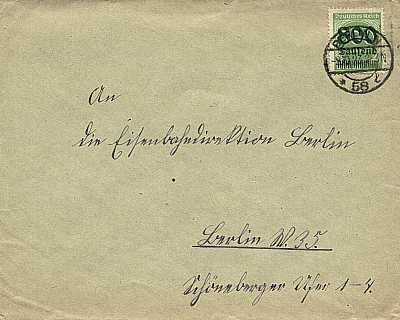 Deutsches Reich
800
Tausend
58
An
die Eisenbahndirektion Berlin
Berlin W. 35.
Schöneberger Ufer 1-4.